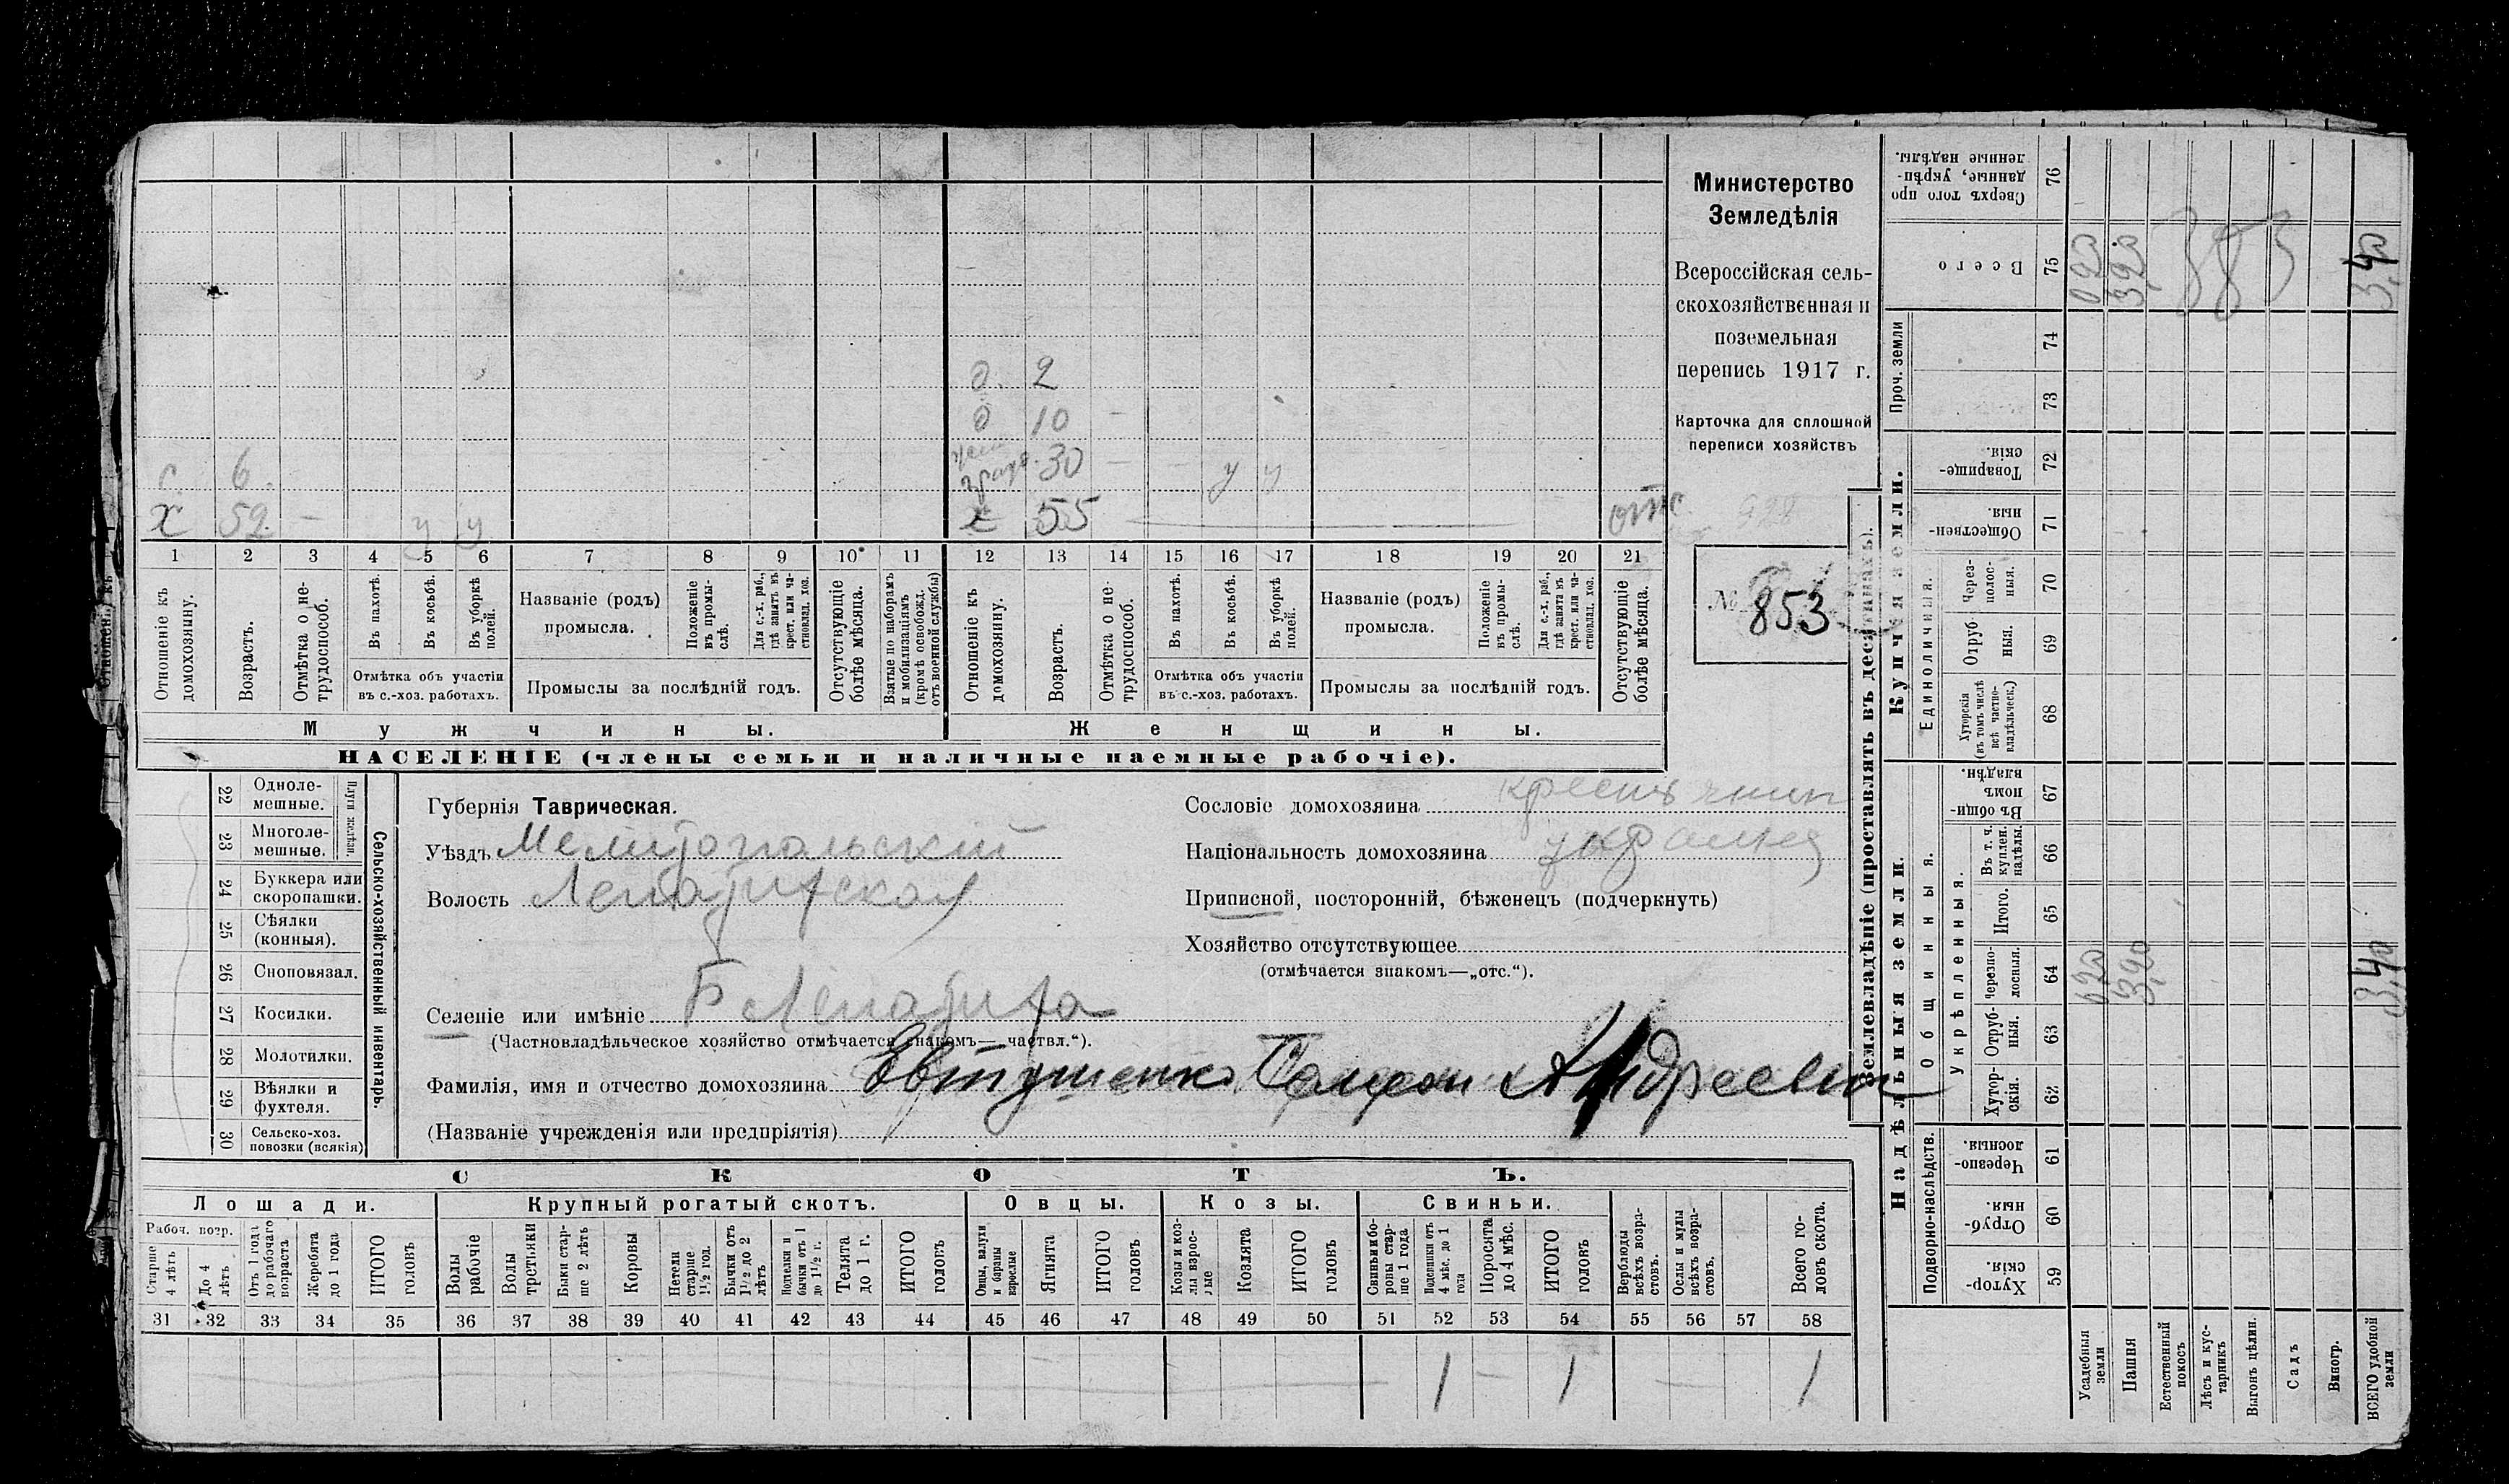 д. 2
д 10 -
30 - - у у
с 6.
х 52. - у у х 55 отс
1 2 3 4 5 6 7 8 9 10 11 12 13 14 15 16 17 18 19 20 21
Отношеніе къ домохозяину.
Возрастъ.
Отмѣтка о не-трудоспособ.
Въ пахотѣ.
Въ косьбѣ.
Въ уборкѣ полей.
Отмѣтка объ участіи
въ с.-хоз. работахъ.
Названіе (родъ)
промысла.
Положеніе въ промы-слѣ.
Для с.-х. раб., гдѣ занятъ въ крест. или ча-стновлад. хоз.
Промыслы за послѣдній годъ.
Отсутствующіе болѣе мѣсяца.
Взятые по наборамъ и мобилизаціямъ (кромѣ освобожд. отъ военной службы)
Отношеніе къ домохозяину.
Возрастъ.
Отмѣтка о не-трудоспособ.
Въ пахотѣ.
Въ косьбѣ.
Въ уборкѣ полей.
Отмѣтка объ участіи
въ с.-хоз. работахъ.
Названіе (родъ)
промысла.
Положеніе въ промы-слѣ.
Для с.-х. раб., гдѣ занята въ крест. или ча-стновлад. хоз.
Промыслы за послѣдній годъ.
Отсутствующіе болѣе мѣсяца.
Мужчины.
Женщины.
НАСЕЛЕНІЕ (члены семьи и наличные наемные рабочіе).
Министерство
Земледѣлія
Всероссійская сель-
скохозяйственная и
поземельная
перепись 1917 г.
Карточка для сплошной
переписи хозяйствъ
№ 853
22 Одноле-мешные.
23 Многоле-мешные.
Плуги желѣзн.
24 Буккера или скоропашки.
25 Сѣялки (конныя).
26 Сноповязал.
27 Косилки.
28 Молотилки.
29 Вѣялки и фухтеля.
30 Сельско-хоз. повозки (всякія)
Сельско-хозяйственный инвентарь.
Губернія Таврическая.
Уѣздъ Мелитопольскій
Волость Лепатихская
Селеніе или имѣніе Б Лепатиха
(Частновладѣльческое хозяйство отмѣчается знакомъ— частвл.“).
Фамилія, имя и отчество домохозяина Евтушенко Самсон Андреевич
(Названіе учрежденія или предпріятія)
Сословіе домохозяина крестьянин
Національность домохозяина украинец
Приписной, посторонній, бѣженецъ (подчеркнуть)
Хозяйство отсутствующее
(отмѣчается знакомъ—„отс.“).
СКОТЪ.
Лошади. Крупный рогатый скотъ. Овцы. Козы. Свиньи.
Рабоч. возр.
Старше 4 лѣтъ
До 4 лѣтъ
Отъ 1 года до рабочаго возраста
Жеребята до 1 года
ИТОГО головъ
Волы рабочіе
Волы третьяки
Быки стар-ше 2 лѣтъ
Коровы
Нетели старше 1½ год.
Бычки отъ 1½ до 2 лѣтъ
Подтелки и бычки отъ 1 до 1½ г.
Телята до 1 г.
ИТОГО головъ
Овцы, валухи и бараны взрослые
Ягнята
ИТОГО головъ
Козы и коз-лы взрос-лые
Козлята
ИТОГО головъ
Свиньи и бо-ровы стар-ше 1 года
Подсвинки отъ 4 мѣс. до 1 года
Поросята до 4 мѣс.
ИТОГО головъ
Верблюды всѣхъ возра-стовъ.
Ослы и мулы всѣхъ возра-стовъ.
Всего го-ловъ скота.
31 32 33 34 35 36 37 38 39 40 41 42 43 44 45 46 47 48 49 50 51 52 53 54 55 56 57 58
1 - 1 - 1
Землевладѣніе (проставлять въ десятинахъ).
Купчая земли.
Надѣльныя земли.
Сверхъ того про данные, укрѣп-ленные надѣлы. 76
Всего 75
Проч. земли 74
73
Товарище-скія. 72
Обществен-ныя. 71
Единоличныя.
Через-полос-ныя. 70
Отруб ныя. 69
Хуторскія (въ томъ числѣ всѣ частно-владѣльческ.) 68
Общинныя.
Въ общи-номъ владѣн. 67
Укрѣпленныя.
Въ т. ч. куплен. надѣлы. 66
Итого. 65
Черезпо-лосныя. 64
Отруб-ныя. 63
Хутор-скія. 62
Подворно-наслѣдств.
Черезпо-лосныя. 61
Отруб-ныя. 60
Хутор-скія. 59
Усадебныя земли
Пашня
Естественный покосъ
Лѣсъ и кус-тарникъ
Выгонъ цѣлин.
Садъ
Виногр.
ВСЕГО удобной земли
0,20 3,20 383 3,40
0,20 3,20 3,40